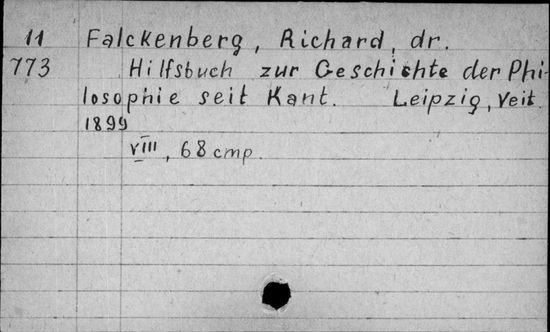 11 Falckenberg, Richard, dr.
773 Hilfsbuch zur Geschichte der Phi-
losophie seit Kant. Leipzig, Veit.
1899
VIII, 68 стр.